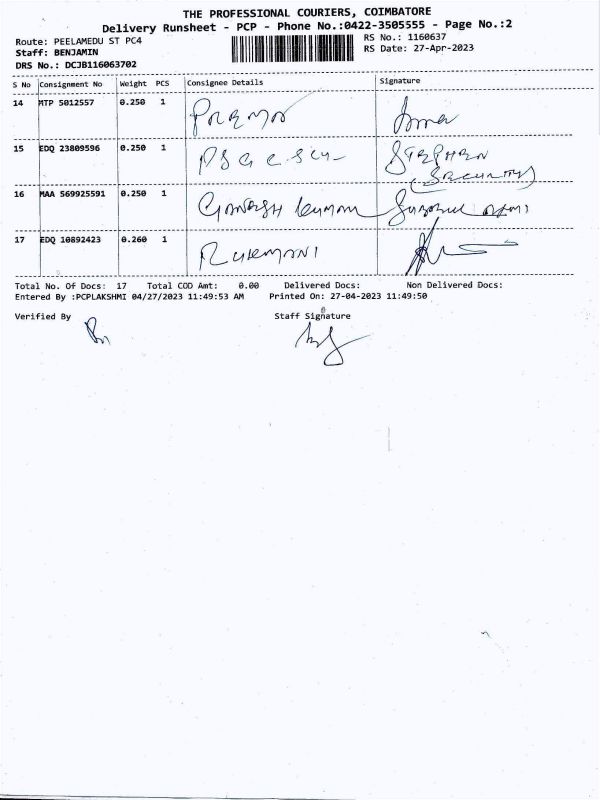 THE PROFESSIONAL COURIERS, COIMBATORE
Delivery Runsheet - PCP - Phone No.:0422-3505555 - Page No.:2
Route: PEELAMEDU ST PC4 RS No.: 1160637
Staff: BENJAMIN RS Date: 27-Apr-2023
DRS No.: DCJB116063702
S No Consignment No Weight PCS Consignee Details Signature
14 MTP 5012557 0.250 1 PREMA
15 EDQ 23809596 0.250 1 STEPHEN
(SECURITY)
16 MAA 569925591 0.250 1 GANESH KUMAR
17 EDQ 10892423 0.260 1 RUKMANI
Total No. Of Docs: 17 Total COD Amt: 0.00 Delivered Docs: Non Delivered Docs:
Entered By :PCPLAKSHMI 04/27/2023 11:49:53 AM Printed On: 27-04-2023 11:49:50
Verified By Staff Signature